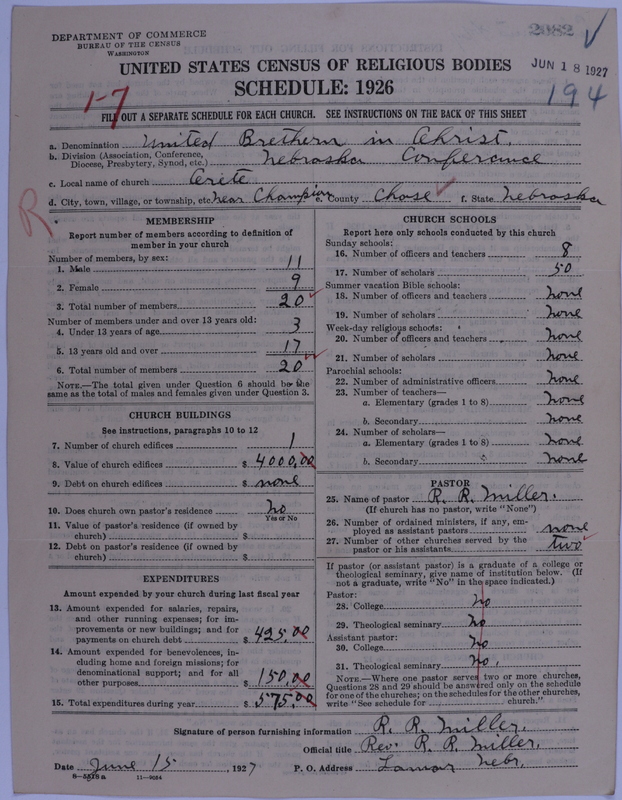 DEPARTMENT OF COMMERCE
BUREAU OF THE CENSUS
WASHINGTON
2082
UNITED STATES CENSUS OF RELIGIOUS BODIES
JUN 18 1927
SCHEDULE: 1926
194
1-7
FILL OUT A SEPARATE SCHEDULE FOR EACH CHURCH. SEE INSTRUCTIONS ON THE BACK OF THIS SHEET
a. Denomination United Brethern in Christ.
b. Division (Association, Conference,
Diocese, Presbytery, Synod, etc.) Nebraska Conferance
c. Local name of church Cerete
d. City, town, village, or township, etc near Champion e. County Chase f. State Nebraska
R
MEMBERSHIP
Report number of members according to definition of
member in your church
Number of members, by sex:
1. Male 11
2. Female 9
3. Total number of members 20
Number of members under and over 13 years old:
4. Under 13 years of age 3
5. 13 years old and over 17
6. Total number of members 20
NOTE.—The total given under Question 6 should be the
same as the total of males and females given under Question 3.
CHURCH BUILDINGS
See instructions, paragraphs 10 to 12
7. Number of church edifices 1
8. Value of church edifices $ 4000,00
9. Debt on church edifices $ none
10. Does church own pastor's residence no
Yes or No
11. Value of pastor's residence (if owned by
church) $
12. Debt on pastor's residence (if owned by
church) $
EXPENDITURES
Amount expended by your church during last fiscal year
13. Amount expended for salaries, repairs,
and other running expenses; for im-
provements or new buildings; and for
payments on church debt $ 425,00
14. Amount expended for benevolences, in-
cluding home and foreign missions; for
denominational support; and for all
other purposes $ 150,00
15. Total expenditures during year $ 575,00
CHURCH SCHOOLS
Report here only schools conducted by this church
Sunday schools:
16. Number of officers and teachers 8
17. Number of scholars 50
Summer vacation Bible schools:
18. Number of officers and teachers none
19. Number of scholars none
Week-day religious schools:
20. Number of officers and teachers none
21. Number of scholars none
Parochial schools:
22. Number of administrative officers none
23. Number of teachers—
a. Elementary (grades 1 to 8) none
b. Secondary none
24. Number of scholars—
a. Elementary (grades 1 to 8) none
b. Secondary none
PASTOR
25. Name of pastor R. R. Miller.
(If church has no pastor, write "None")
26. Number of ordained ministers, if any, em-
ployed as assistant pastors none
27. Number of other churches served by the
pastor or his assistants two
If pastor (or assistant pastor) is a graduate of a college or
theological seminary, give name of institution below. (If
not a graduate, write "No" in the space indicated.)
Pastor:
28. College no
29. Theological seminary No
Assistant pastor:
30. College No
31. Theological seminary No.
NOTE.—Where one pastor serves two or more churches,
Questions 28 and 29 should be answered only on the schedule
for one of the churches; on the schedules for the other churches,
write "See schedule for church."
Signature of person furnishing information R. R. Miller.
Official title Rev. R. R. Miller.
Date June 15, 1927 P. O. Address Lamar Nebr.
8—5578a 11—9064